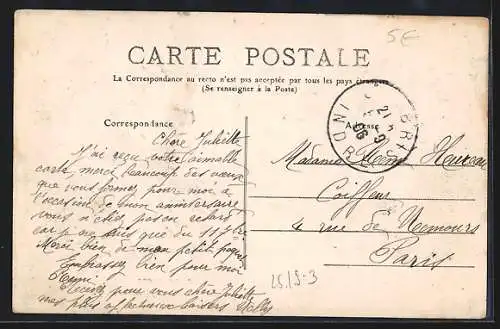 5€
CARTE POSTALE
La Correspondance au recto n'est pas acceptée par tous les pays étrangers
(Se renseigner à la Poste)
Correspondance
Adresse
Chère Juliette
J'ai reçu votre aimable
carte, merci beaucoup des vœux
que vous formez pour moi à
l'occasion de mon anniversaire
vous n'êtes pas en retard
car je suis que du 11 7bre
Merci bien de mon petit
Embrassez bien pour moi
Recevez pour vous chère Juliette
nos plus affectueux baisers
Madame Henri
Coiffeur
4 rue de Nemours
Paris
BRI
21
9
06
2519-3